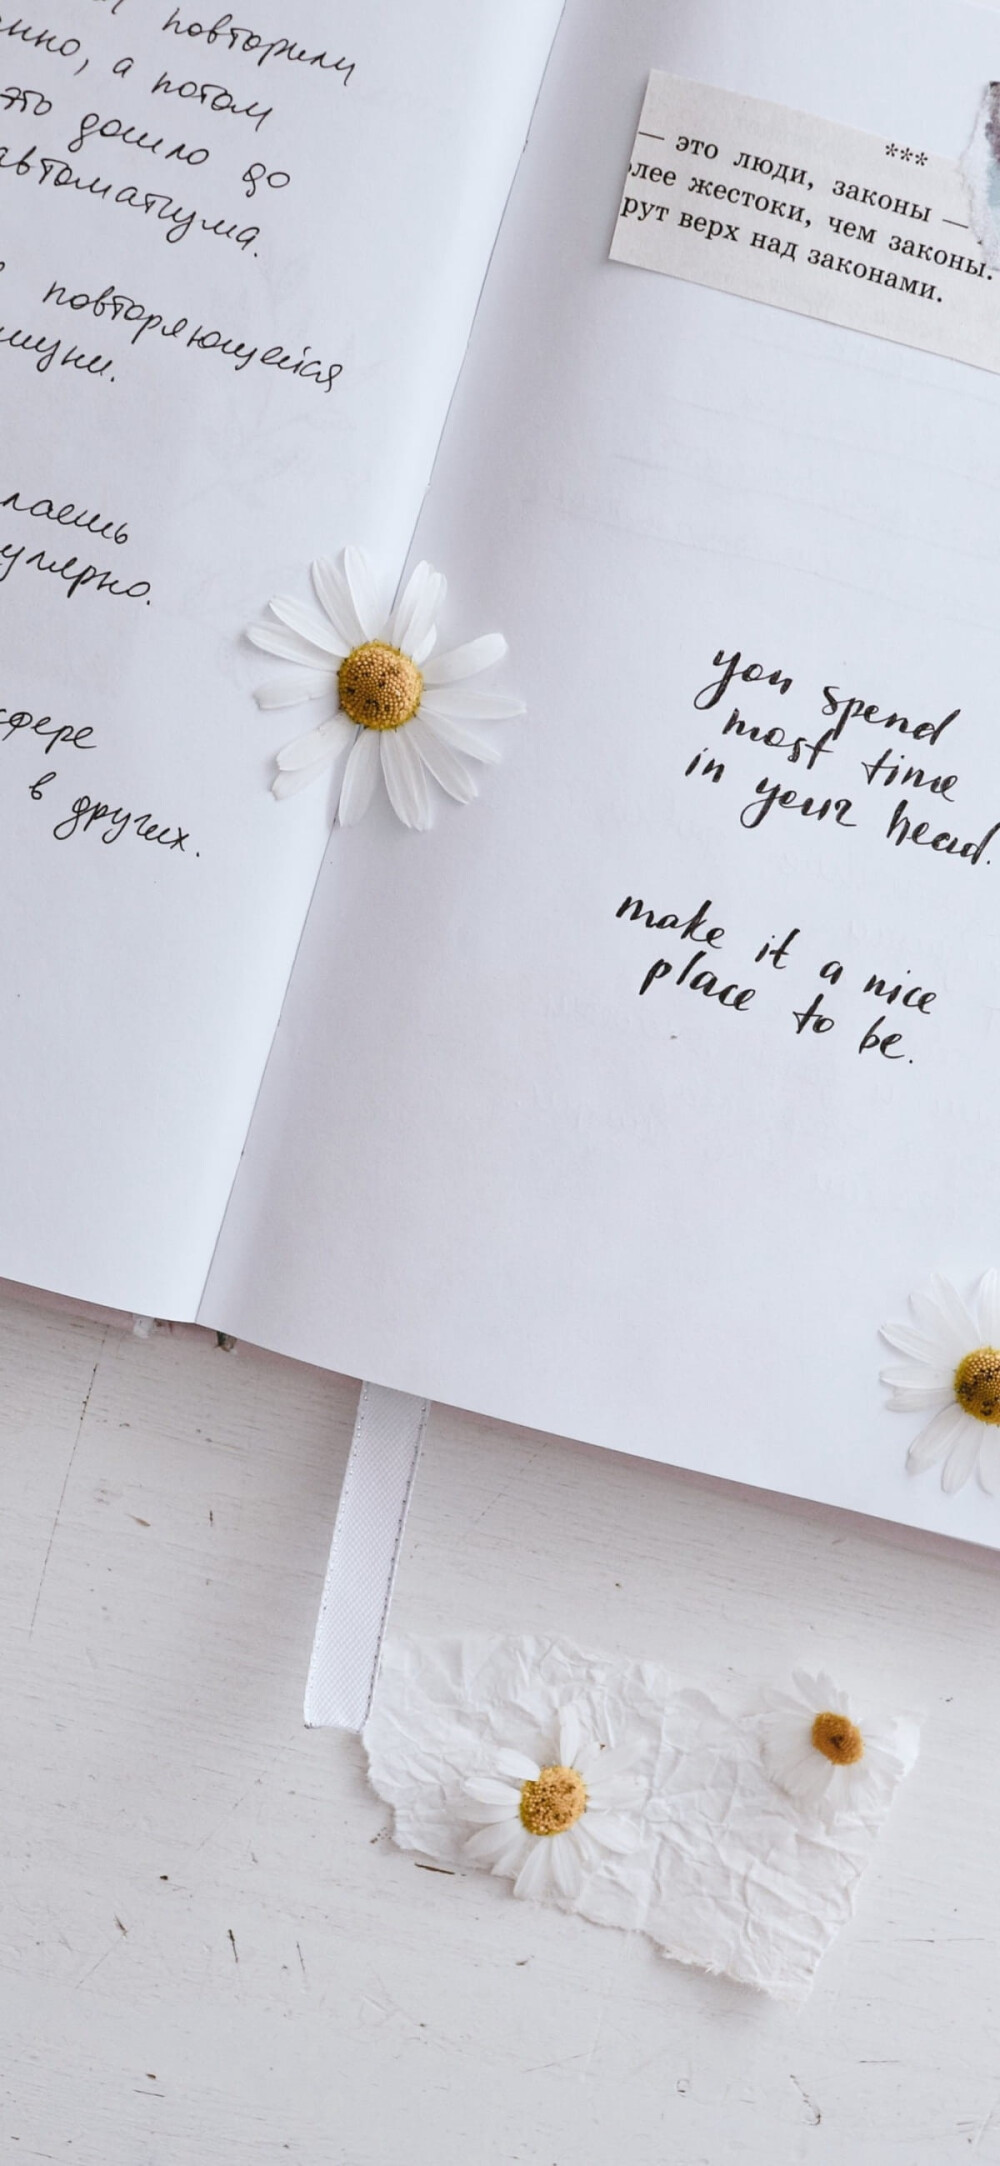 повторили
нно, а потом
это дошло до
автоматизма.
повторяющейся
зни.
лаешь
улярно.
сфере
в других.
***
— это люди, законы —
лее жестоки, чем законы.
рут верх над законами.
you spend
most time
in your head.
make it a nice
place to be.